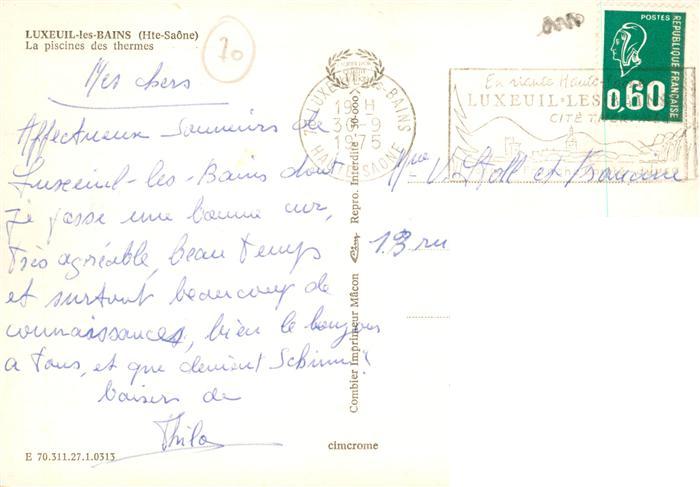 LUXEUIL-les-BAINS (Hte-Saône)
La piscines des thermes
70
Mes chers
Affectueux souvenirs de
Luxeuil-les-Bains dont
je passe une bonne cure,
très agréable, beau temps
et surtout beaucoup de
connaissances, bien le bonjour
a tous, et que devient
baisers de
Thila
E 70.311.27.1.0313
Combier Imprimeur Mâcon Cim Repro. Interdite 50-000
cimcrome
LUXEUIL-les-BAINS
19 H
-9
1975
HAUTE-SAONE
En riante Haute-
LUXEUIL-LES
CITÉ
POSTES
RÉPUBLIQUE FRANÇAISE
0,60
Mme V. Stoll et
13 ru